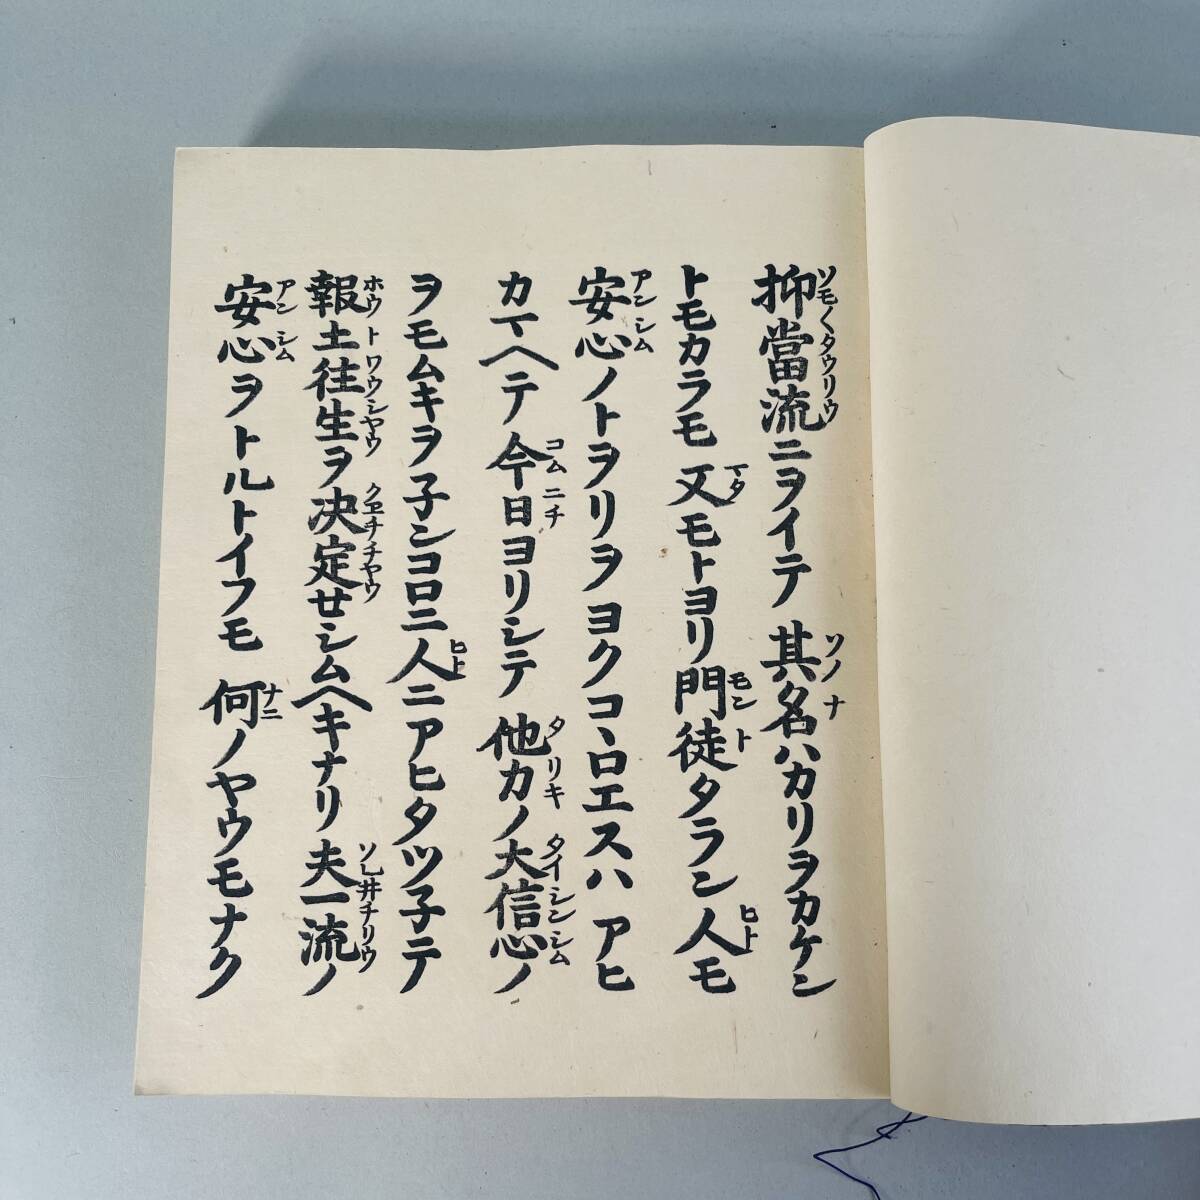 抑當流ニヲイテ 其名ハカリヲカケン
トモカラモ 又モトヨリ門徒タラン人モ
安心ノトヲリヲヨクコヽロエスハ アヒ
カマヘテ 今日ヨリシテ 他力ノ大信心ノ
ヲモムキヲ子ンコロニ人ニアヒタツ子テ
報土往生ヲ決定せシムヘキナリ 夫一流ノ
安心ヲトルトイフモ 何ノヤウモナク